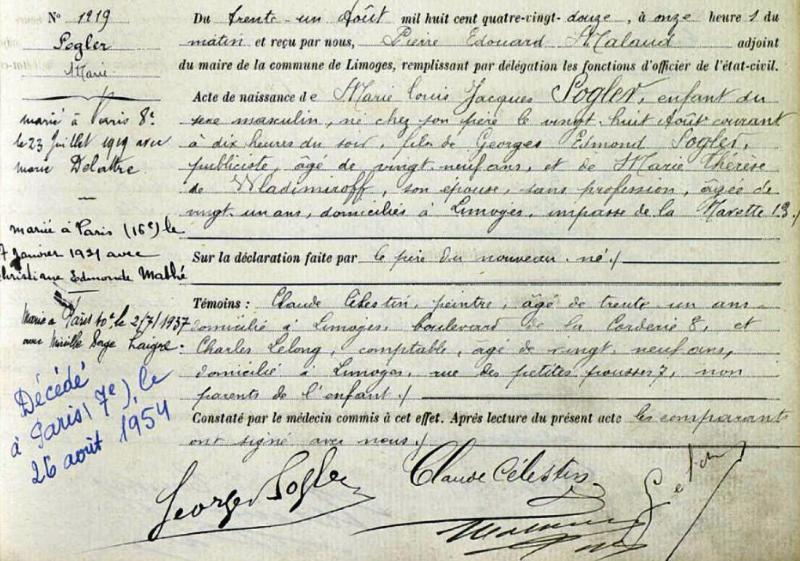 N° 1219
Sogler
Marie
marié à Paris 8e
le 23 Juillet 1919 avec
Marie Delattre
mariée à Paris (16e) le
7 Janvier 1931 avec
Christiane Edmonde Mathé
Marié à Paris 10e le 2/7/1937
avec Mireille Serge Laigre
Décédé
à Paris (7e), le
26 août 1954
Du trente-un Août mil huit cent quatre-vingt-douze, à onze heures du
matin et reçu par nous, Pierre Edouard Malaud adjoint
du maire de la commune de Limoges, remplissant par délégation les fonctions d'officier de l'état-civil.
Acte de naissance de Marie Louis Jacques Sogler, enfant du
sexe masculin, né chez son père le vingt-huit Août courant
à dix heures du soir, fils de Georges Edmond Sogler,
publiciste, âgé de vingt-neuf ans, et de Marie Thérèse
de Wladimiroff, son épouse, sans profession, âgée de
vingt-un ans, domiciliés à Limoges, impasse de la 13./
Sur la déclaration faite par le père du nouveau-né./
Témoins : Claude Célestin, peintre, âgé de trente-un ans
domicilié à Limoges, boulevard de la Corderie 8, et
Charles Lelong, comptable, âgé de vingt-neuf ans,
domicilié à Limoges, rue des petites pousses 7, non
parents de l'enfant./
Constaté par le médecin commis à cet effet. Après lecture du présent acte les comparants
ont signé avec nous./
Georges Sogler
Claude Célestin